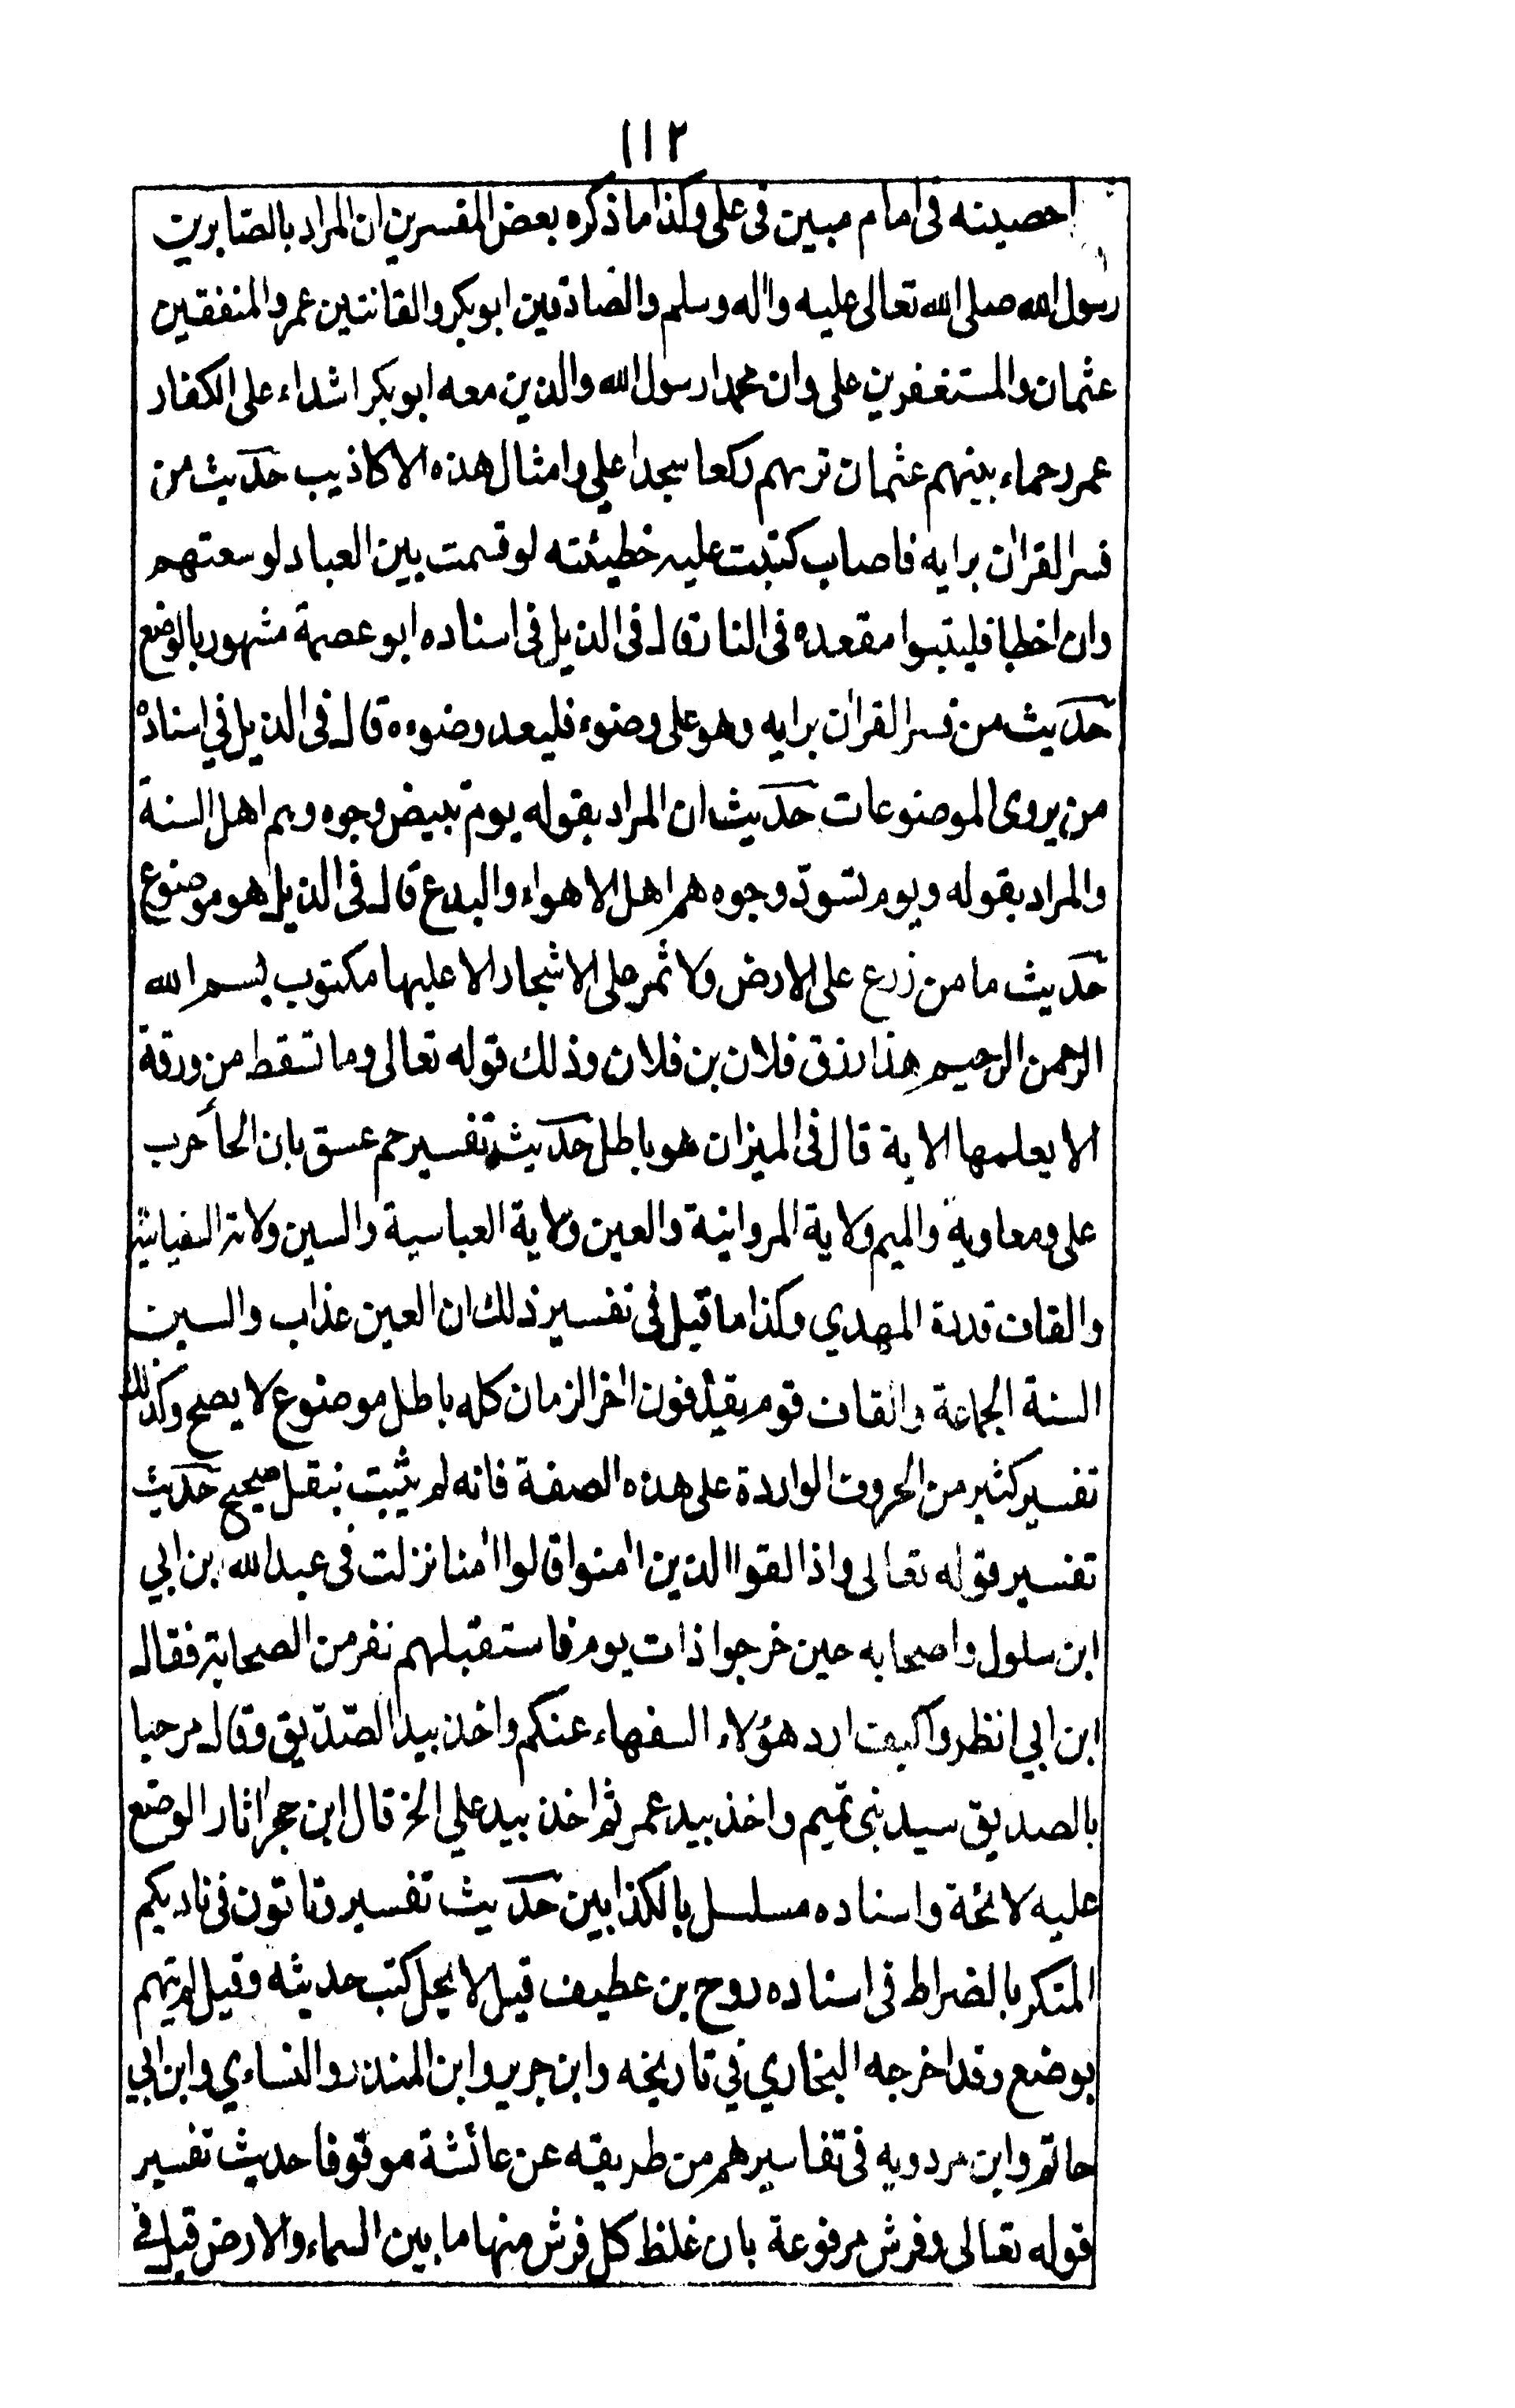 ١١٢
احصينه فى امام مبين فى على وكذا ما ذكره بعض المفسرين ان المراد بالصّابرين
رسول الله صلى الله تعالى عليه واله وسلم والصادقين ابوبكر والقانتين عمر والمنفقين
عثمان والمستغفرين على وان محمدا رسول الله والذين معه ابوبكر اشداء على الكفار
عمر رحماء بينهم عثمان تريهم ركعا سجدا علي وامثال هذه الاكاذيب حديث من
فسر القران برايه فاصاب كتبت عليه خطيئته لو قسمت بين العباد لوسعتهم
وان اخطا فليتبوا مقعده فى النار قال فى الذيل فى اسناده ابو عصمة مشهور بالوضع
حديث من فسر القران برايه وهو على وضوء فليعد وضوءه قال فى الذيل في اسناده
من يروى الموضوعات حديث ان المراد بقوله يوم تبيض وجوه وهم اهل السنة
والمراد بقوله ويوم تسودّ وجوه هم اهل الاهواء والبدع قال فى الذيل هو موضوع
حديث ما من زرع على الارض ولا ثمر على الاشجار الا عليها مكتوب بسم الله
الرحمن الرحيم هذا رزق فلان بن فلان وذلك قوله تعالى وما تسقط من ورقة
الا يعلمها الاية قال فى الميزان هو باطل حديث تفسير حم عسق بان الحا حرب
على ومعاوية والميم ولاية المروانية والعين ولاية العباسية والسين ولاية السفيانية
والقاف قدرة المهدي وكذا ما قيل فى تفسير ذلك ان العين عذاب والسين
السنة الجماعة والقاف قوم يقذفون اخر الزمان كله باطل موضوع لا يصح وكذلك
تفسير كثير من الحروف الواردة على هذه الصفة فانه لم يثبت بنقل صحيح حديث
تفسير قوله تعالى واذا لقوا الذين امنوا قالوا امنا نزلت فى عبد الله بن ابي
ابن سلول واصحابه حين خرجوا ذات يوم فاستقبلهم نفر من الصحابة فقال
ابن ابي انظروا كيف ارد هؤلاء السفهاء عنكم واخذ بيد الصّدّيق وقال مرحبا
بالصديق سيد بنى تميم واخذ بيد عمر ثم اخذ بيد علي الخ قال ابن حجر اثار الوضع
عليه لائحة واسناده مسلسل بالكذابين حديث تفسير وتاتون فى ناديكم
المنكر بالضراط فى اسناده روح بن عطيف قيل لا يحل كتب حديثه وقيل لم يتهم
بوضع وقد اخرجه البخاري في تاريخه وابن جرير وابن المنذر والنساءي وابن ابي
حاتم وابن مردويه فى تفاسيرهم من طريقه عن عائشة موقوفا حديث تفسير
قوله تعالى وفرش مرفوعة بان غلظ كل فرش منها ما بين السماء والارض قيل في